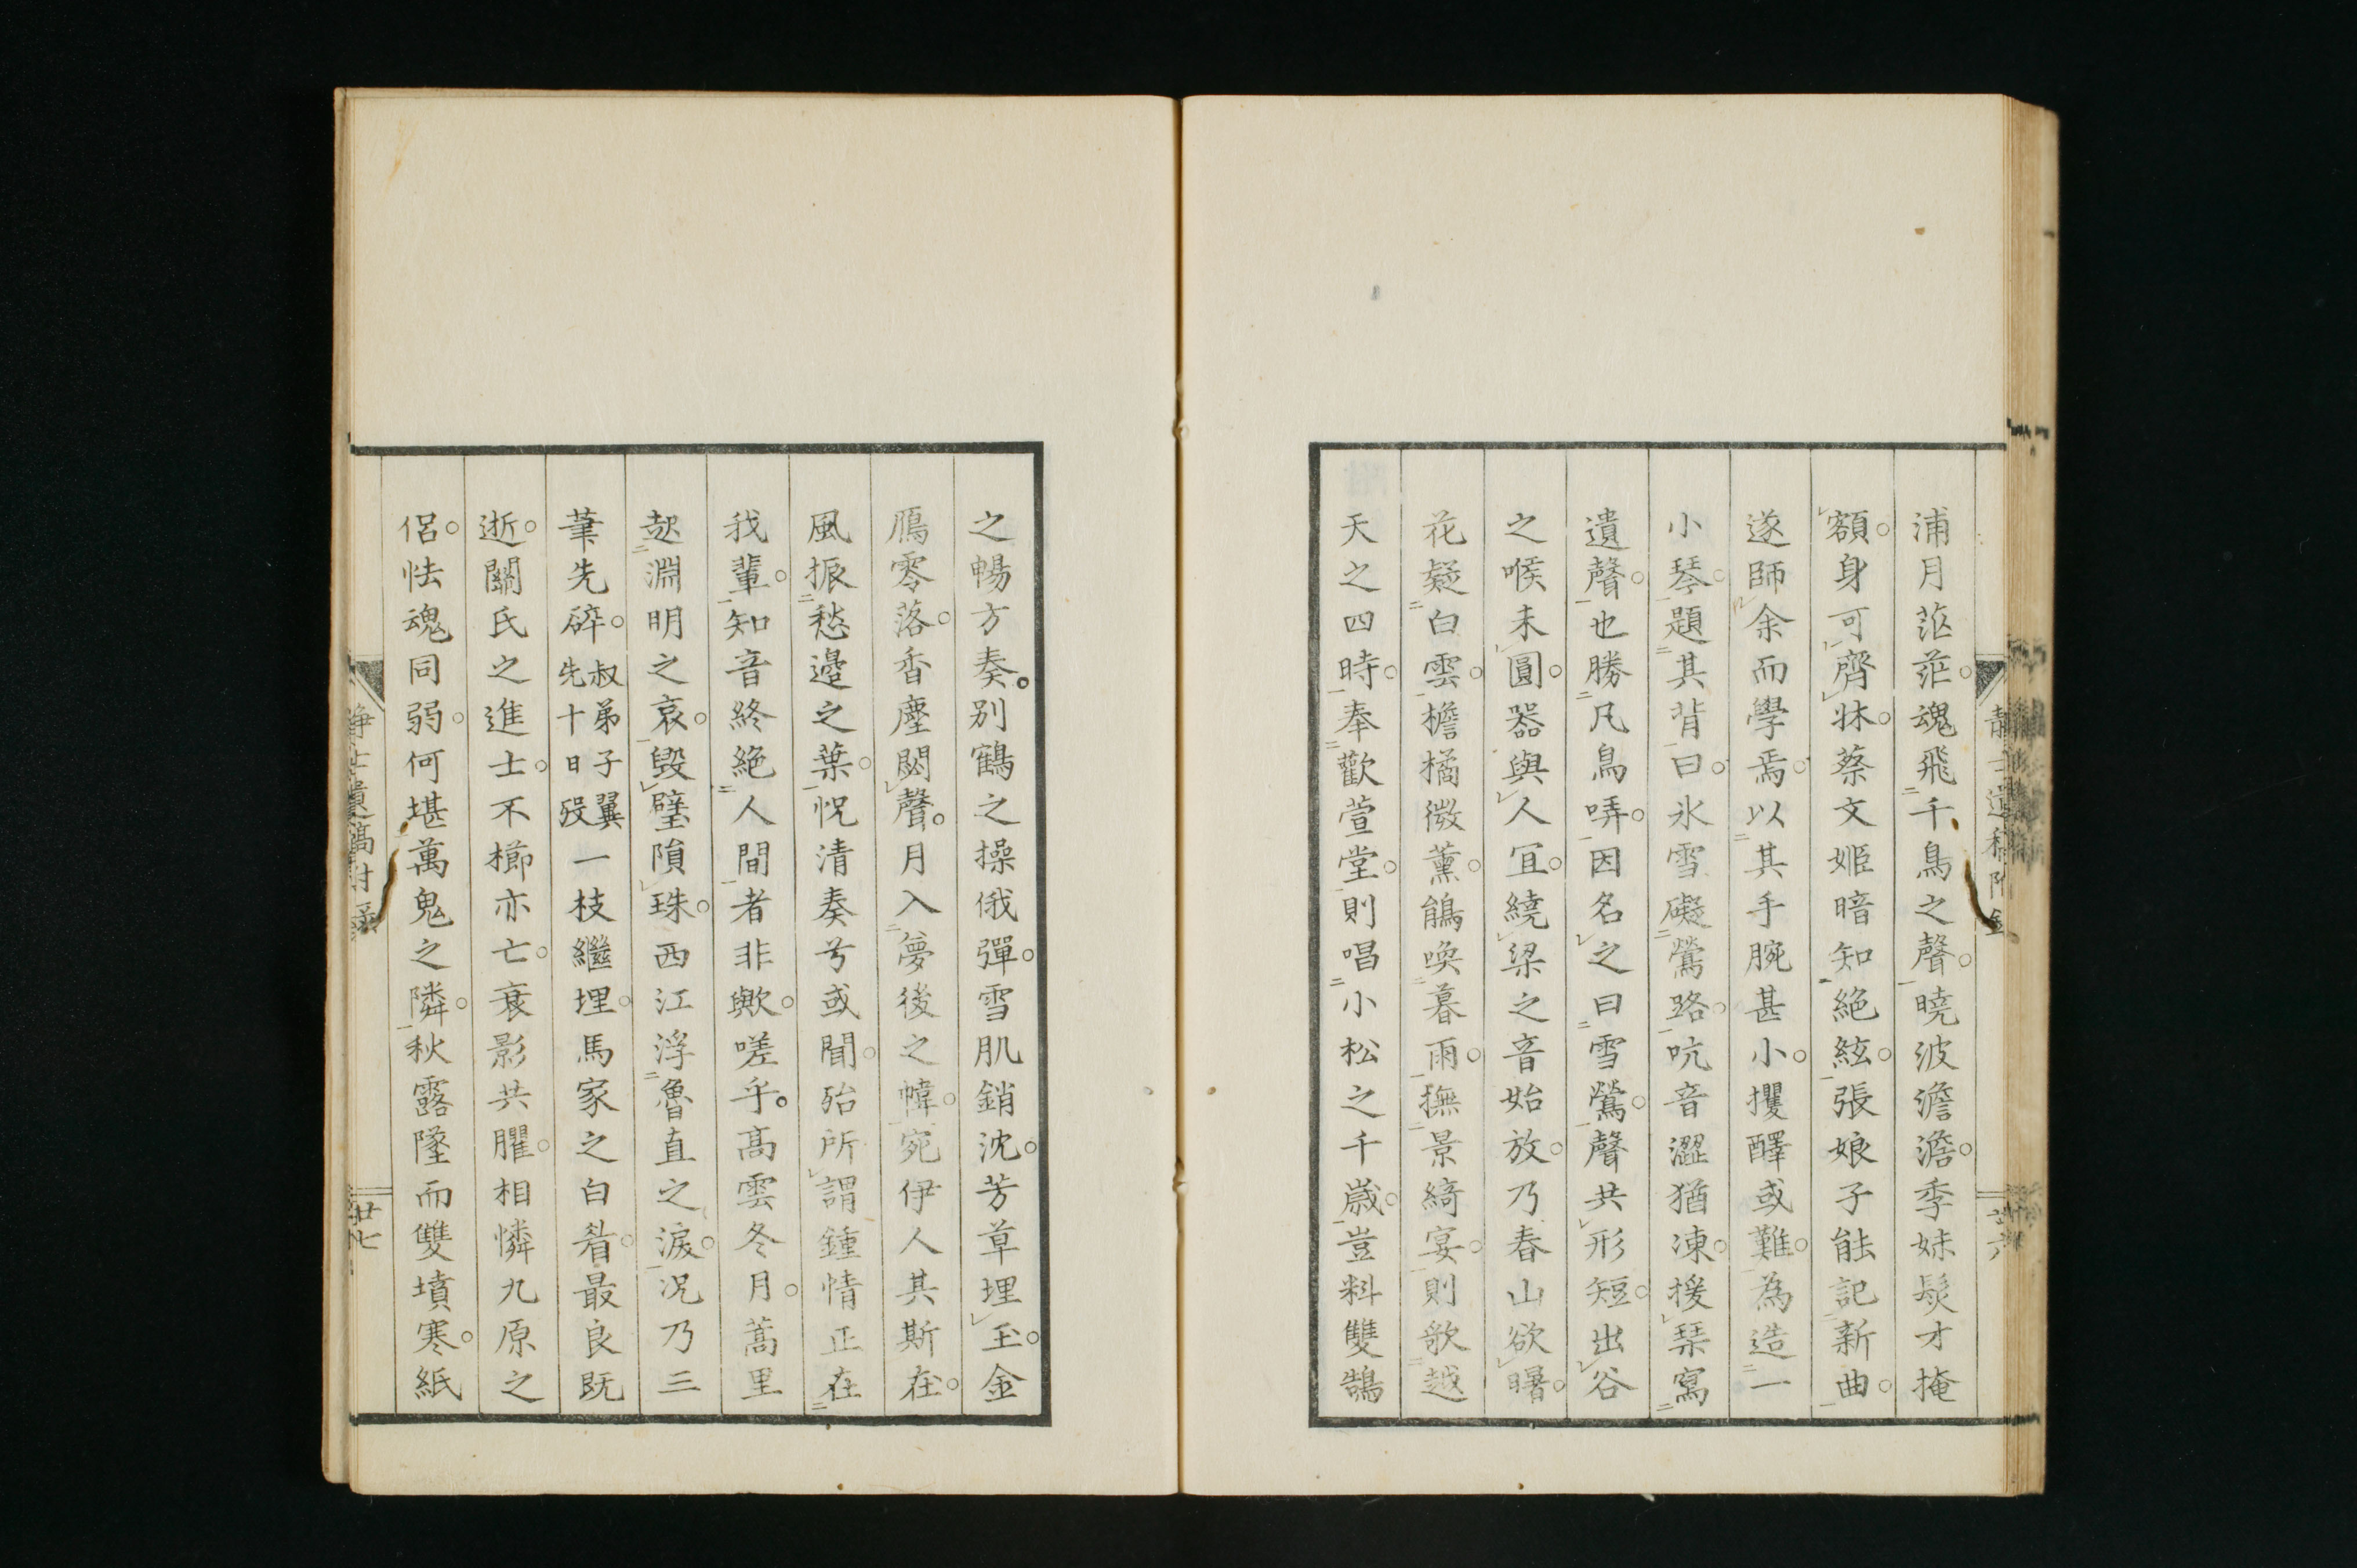 浦月茫茫。魂飛千鳥之聲。曉波澹澹。季妹髮才掩
額。身可齊牀。蔡文姬暗知絕絃。張娘子能記新曲。
遂師余而學焉。以其手腕甚小。攫醳或難。為造一
小琴。題其背曰。氷雪礙鶯路。吭音澀猶凍。援琹寫
遺聲。也勝凡鳥哢。因名之曰雪鶯。聲共形短。出谷
之喉未圓。器與人冝。繞梁之音始放。乃春山欲曙。
花疑白雲。檐橘微薰。鵑喚暮雨。撫景綺宴。則歌越
天之四時。奉歡萱堂。則唱小松之千歲。豈料雙鵠
之暢方奏。別鶴之操俄彈。雪肌銷沈。芳草埋玉。金
鴈零落。香塵閟聲。月入夢後之幃。宛伊人其斯在。
風振愁邊之葉。怳清奏兮或聞。殆所謂鍾情正在
我輩。知音終絕人間者非歟。嗟乎。高雲冬月。蒿里
起淵明之哀。毀璧隕珠。西江浮魯直之淚。況乃三
筆先碎。叔弟子翼先十日歿一枝繼埋。馬家之白眉最良既
逝。關氏之進士。不櫛亦亡。衰影共臞。相憐九原之
侶。怯魂同弱。何堪萬鬼之隣。秋露墜而雙墳寒。紙
廿七